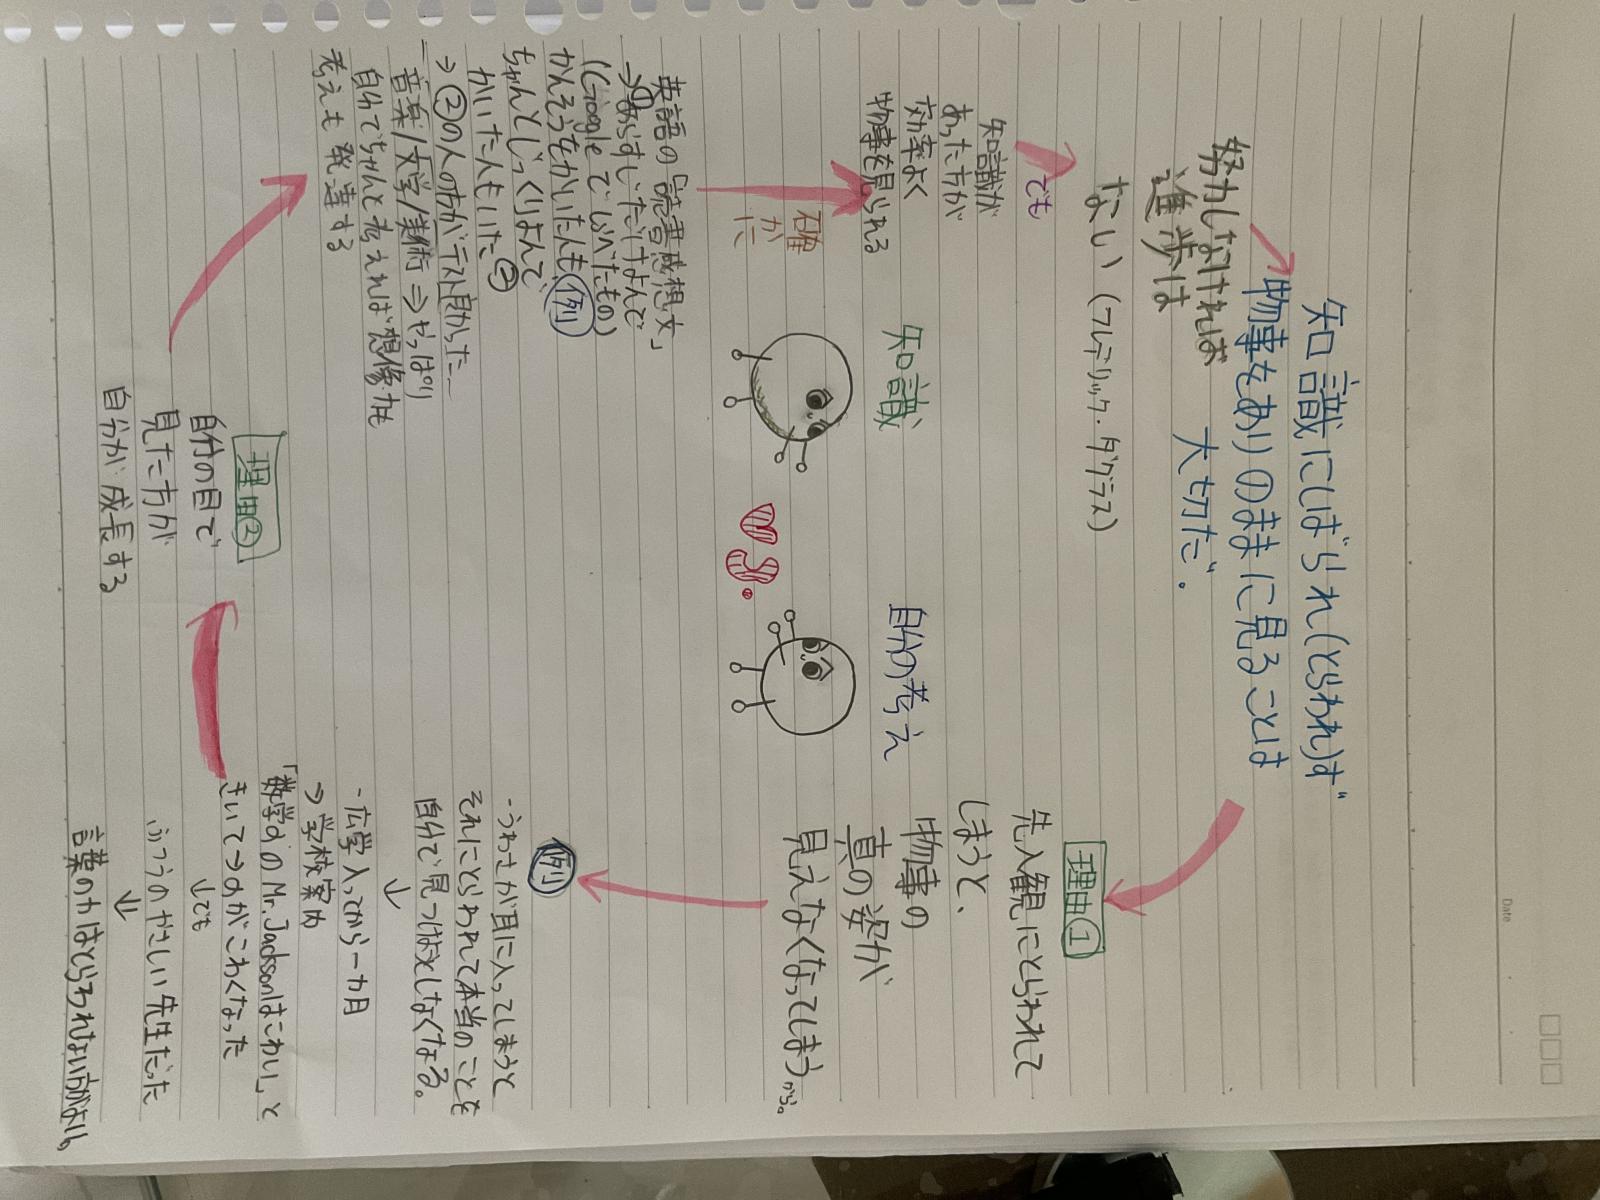 Date
知識にしばられ(とらわれ)ず
物事をありのままに見ることは
大切だ。
努力しなければ
進歩は
ない(フレデリック・ダグラス)
でも
知識が
あった方が
効率よく
物事を見られる
確
か
に
知識
VS.
自分の考え
理由①
先入観にとらわれて
しまうと、
物事の
真の姿が
見えなくなってしまうから。
例
・うわさが耳に入ってしまうと
それにとらわれて本当のことを
自分で見つけ
しなくなる。
↓
・広学入ってから一カ月
⇒学校案内
「数学のMr. Jacksonはこわい」と
きいて→
がこわくなった
↓でも
ふつうのやさしい先生だった
⇓
言葉の力はとらわれない方がよい。
理由②
自分の目で
見た方が
自分が成長する
英語の「読書感想文」
→①あらすじだけよんで
(Googleでしらべたもの)
かんそうをかいた人も 例
ちゃんとじっくりよんで
かいた人もいた②
⇒②の人の方がテスト良かった…
音楽/文学/美術⇒やっぱり
自分でちゃんと考えれば想像力も
考えも発達する